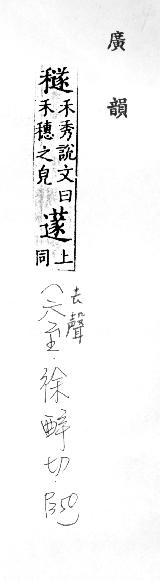 廣韻
穟禾秀說文曰
禾穗之皃䔹上同
去聲
(六至.徐醉切.P350)